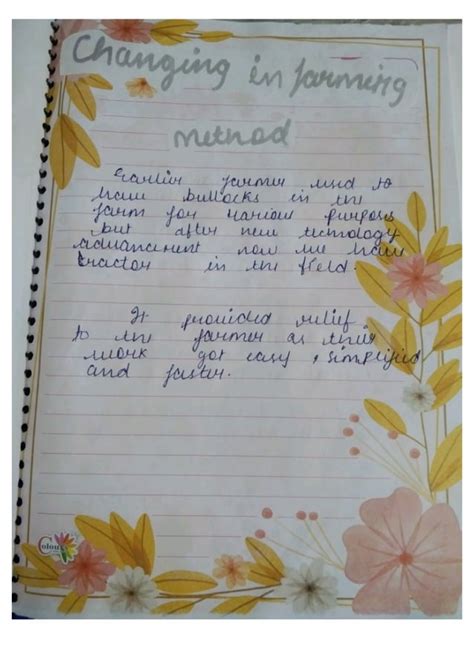 Changing in farming
method
Earlier farmer used to
have bullocks in the
farm for various purposes
but after new technology
advancement now we have
tractor in the field.
It provided relief
to the farmer as their
work got easy, simplified
and faster.
Colour